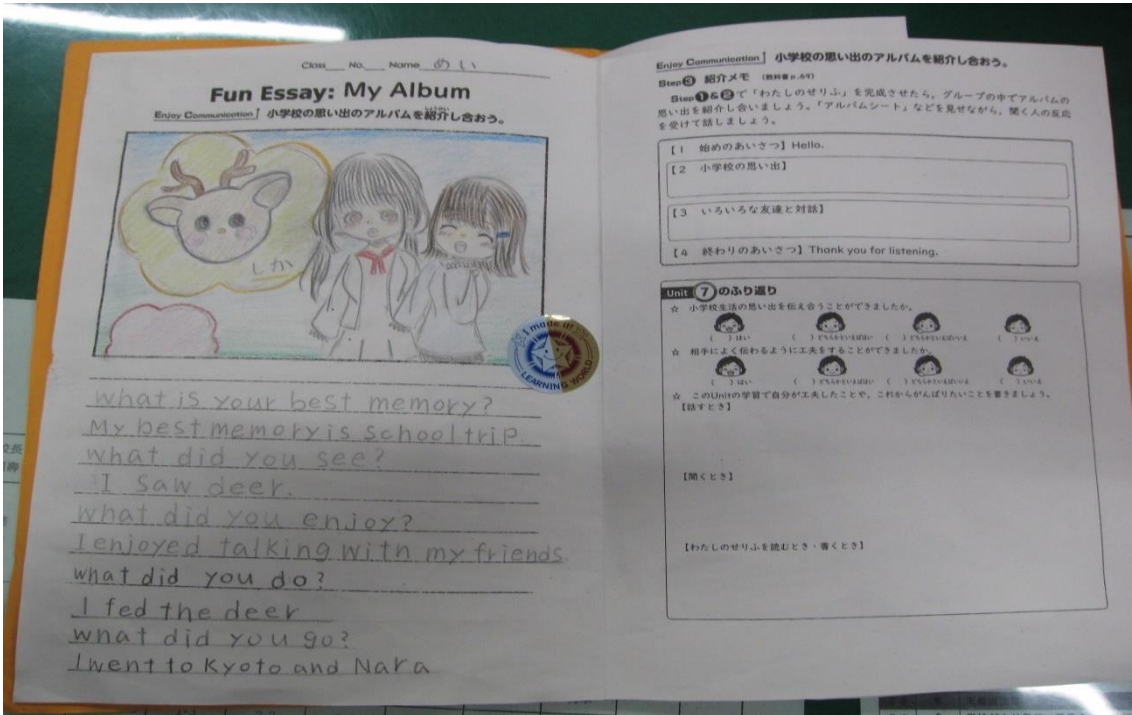 Class No. Name めい
Fun Essay: My Album
Enjoy Communication 小学校の思い出のアルバムを紹介し合おう。
しか
I made it!
LEARNING WORLD
what is your best memory?
My best memory is school trip.
what did you see?
I saw deer.
what did you enjoy?
I enjoyed talking with my friends.
what did you do?
I fed the deer
what did you go?
I went to Kyoto and Nara
Enjoy Communication 小学校の思い出のアルバムを紹介し合おう。
Step3 紹介メモ (教科書p.69)
Step1&2で「わたしのせりふ」を完成させたら，グループの中でアルバムの
思い出を紹介し合いましょう。「アルバムシート」などを見せながら，聞く人の反応
を受けて話しましょう。
【1 始めのあいさつ】Hello.
【2 小学校の思い出】
【3 いろいろな友達と対話】
【4 終わりのあいさつ】Thank you for listening.
Unit 7のふり返り
☆ 小学校生活の思い出を伝え合うことができましたか。
( )はい ( )どちらかといえばはい ( )どちらかといえばいいえ ( )いいえ
☆ 相手によく伝わるように工夫をすることができましたか。
( )はい ( )どちらかといえばはい ( )どちらかといえばいいえ ( )いいえ
☆ このUnitの学習で自分が工夫したことや，これからがんばりたいことを書きましょう。
【話すとき】
【聞くとき】
【わたしのせりふを読むとき・書くとき】
校長